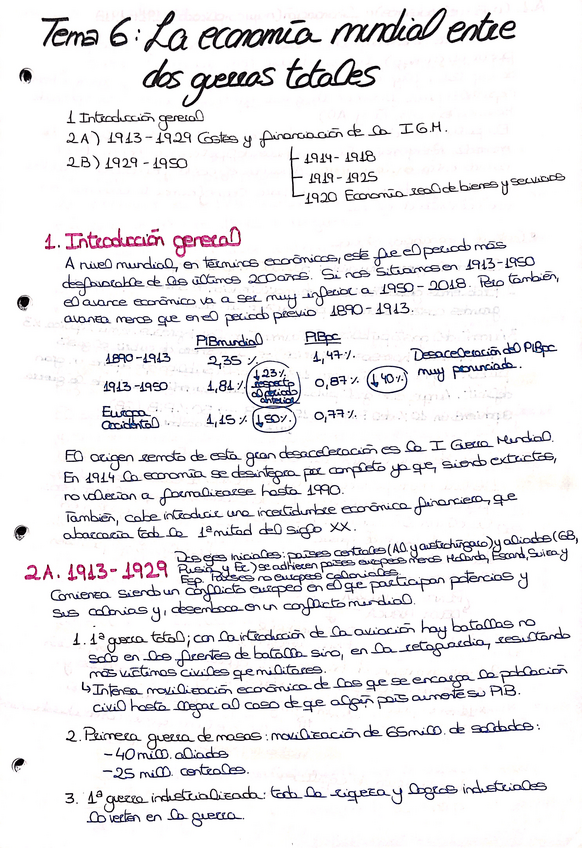 Tema 6: La economía mundial entre
dos guerras totales
1 Introducción general
2A) 1913-1929 Costes y financiación de la I G.M.
2B) 1929-1950
1914-1918
1919-1925
1920 Economía real de bienes y servicios
1. Introducción general
A nivel mundial, en términos económicos, este fue el periodo más
desfavorable de los últimos 200 años. Si nos situamos en 1913-1950
el avance económico va a ser muy inferior a 1950-2018. Pero también,
avanza menos que en el periodo previo 1890-1913.
PIBmundial PIBpc
1890-1913 2,35 % 1,47 %
1913-1950 1,81 % ↓23% respecto al periodo anterior 0,87 % ↓40% Desaceleración del PIBpc muy pronunciada.
Europa Occidental 1,15 % ↓50% 0,77 %
El origen remoto de esta gran desaceleración es la I Guerra Mundial.
En 1914 la economía se desintegra por completo ya que, siendo estrictos,
no volverían a formalizarse hasta 1990.
También, cabe introducir una incertidumbre económica financiera, que
abarcaría toda la 1ª mitad del siglo XX.
2A. 1913-1929
Dos ejes iniciales: países centrales (Al. y austrohúngaro) y aliados (GB,
Rusia y Fr.) se adhieren países europeos menos Holanda, Escand, Suiza y
Esp. Países no europeos coloniales
Comienza siendo un conflicto europeo en el que participan potencias y
sus colonias y, desemboca en un conflicto mundial.
1. 1ª guerra total; con la introducción de la aviación hay batallas no
solo en los frentes de batalla sino, en la retaguardia, resultando
más víctimas civiles que militares.
↳ Intensa movilización económica de las que se encarga la población
civil hasta llegar al caso de que algún país aumente su PIB.
2. Primera guerra de masas: movilización de 65 mill. de soldados:
-40 mill. aliados
-25 mill. centrales.
3. 1ª guerra industrializada: toda la riqueza y logros industriales
lo vierten en la guerra.